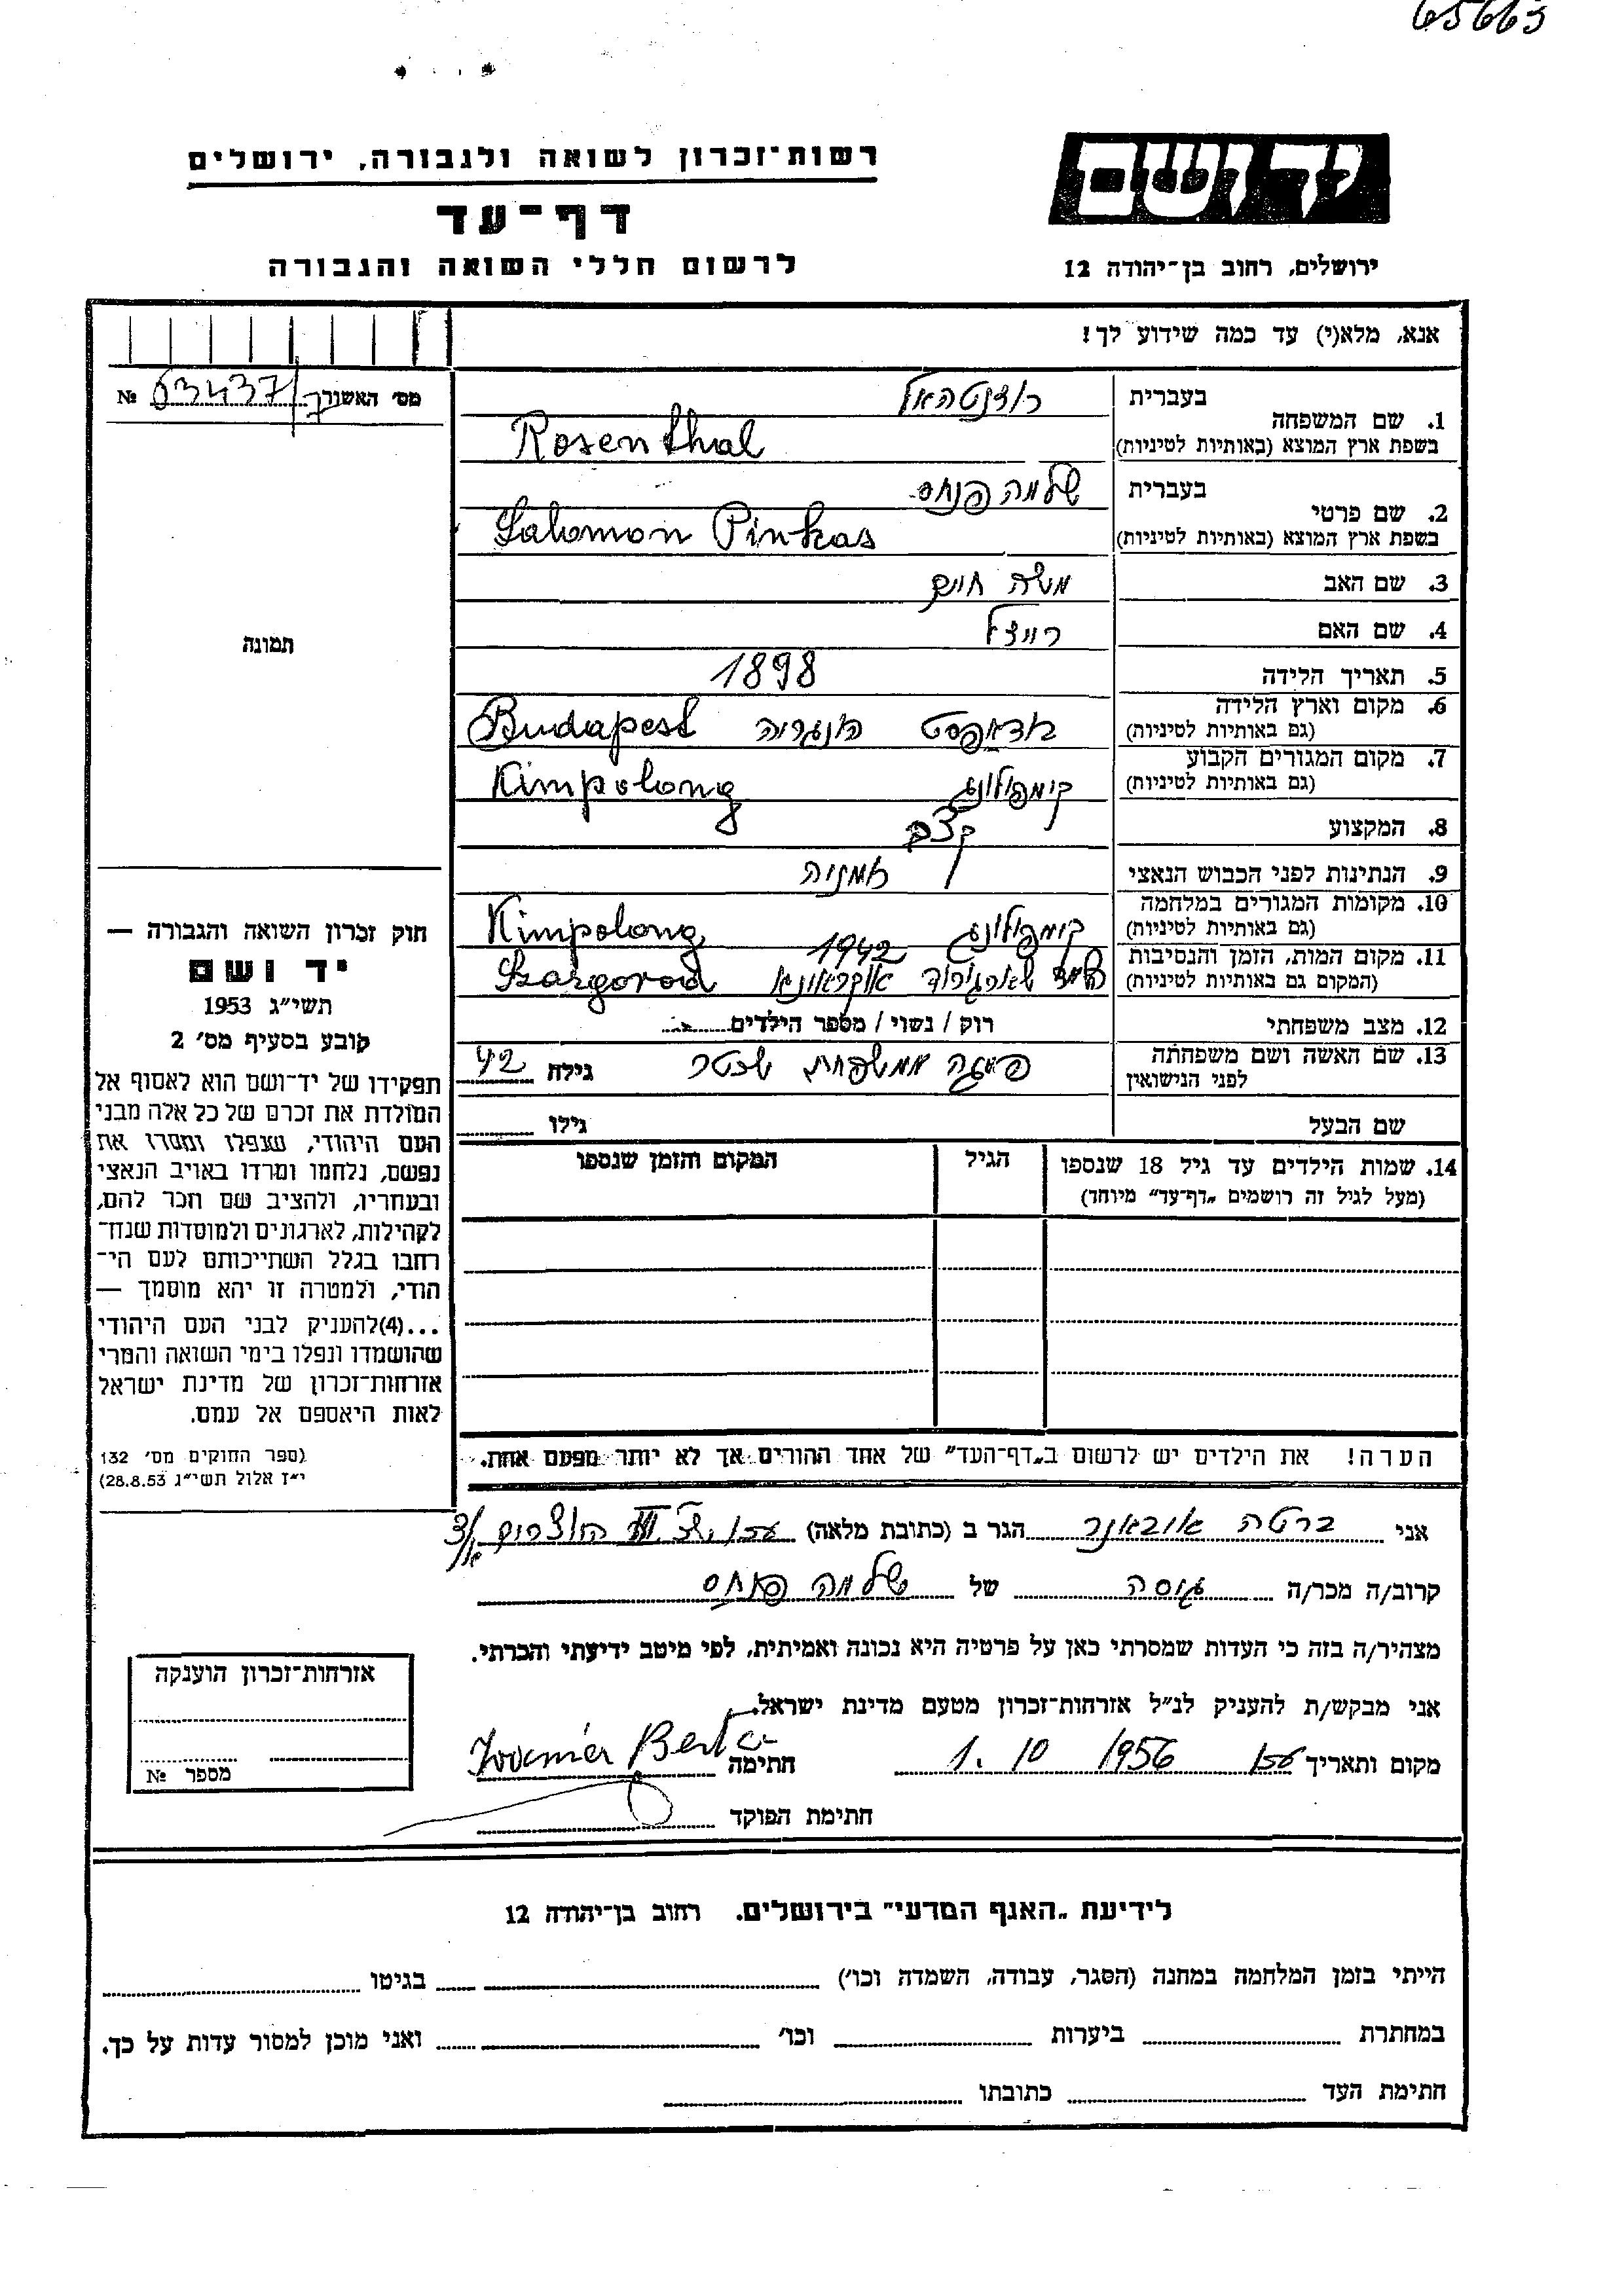 65663
רשות־זכרון לשואה ולגבורה, ירושלים
דף־עד
לרשום חללי השואה והגבורה
יד ושם
ירושלים, רחוב בן־יהודה 12
אנא, מלא(י) עד כמה שידוע לך!
מס׳ האשור 63437/7 №
1. שם המשפחה
בעברית רוזנטהאל
בשפת ארץ המוצא (באותיות לטיניות) Rosenthal
2. שם פרטי
בעברית שלמה פנחס
בשפת ארץ המוצא (באותיות לטיניות) Salomon Pinkas
3. שם האב משה חיים
4. שם האם רייצל
5. תאריך הלידה 1898
6. מקום וארץ הלידה בודאפסט הונגריה Budapest
(גם באותיות לטיניות)
7. מקום המגורים הקבוע קימפולונג Kimpolong
(גם באותיות לטיניות)
8. המקצוע קצב
9. הנתינות לפני הכבוש הנאצי
10. מקומות המגורים במלחמה קימפולונג Kimpolong
(גם באותיות לטיניות)
11. מקום המות, הזמן והנסיבות 1942
(המקום גם באותיות לטיניות) שארגורוד אוקראינא Szargorod
12. מצב משפחתי רוק / נשוי / מספר הילדים
13. שם האשה ושם משפחתה ממשפחת שכטר גילה 42
לפני הנישואין
שם הבעל גילו
14. שמות הילדים עד גיל 18 שנספו הגיל המקום והזמן שנספו
(מעל לגיל זה רושמים „דף־עד״ מיוחד)
הערה! את הילדים יש לרשום ב„דף־העד״ של אחד ההורים אך לא יותר מפעם אחת.
תמונה
חוק זכרון השואה והגבורה —
יד ושם
תשי״ג 1953
קובע בסעיף מס׳ 2
תפקידו של יד־ושם הוא לאסוף אל
המולדת את זכרם של כל אלה מבני
העם היהודי, שנפלו ומסרו את
נפשם, נלחמו ומרדו באויב הנאצי
ובעוזריו, ולהציב שם וזכר להם,
לקהילות, לארגונים ולמוסדות שנח־
רבו בגלל השתייכותם לעם הי־
הודי, ולמטרה זו יהא מוסמך —
...(4) להעניק לבני העם היהודי
שהושמדו ונפלו בימי השואה והמרי
אזרחות־זכרון של מדינת ישראל
לאות היאספם אל עמם.
(ספר החוקים מס׳ 132
י״ז אלול תשי״ג 28.8.53)
אני ברטה אובאנר הגר ב (כתובת מלאה) עכו
קרוב/ה מכר/ה גיסה של שלמה פנחס
מצהיר/ה בזה כי העדות שמסרתי כאן על פרטיה היא נכונה ואמיתית, לפי מיטב ידיעתי והכרתי.
אני מבקש/ת להעניק לנ״ל אזרחות־זכרון מטעם מדינת ישראל.
מקום ותאריך עכו 1. 10 1956 חתימה Berta
חתימת הפוקד
אזרחות־זכרון הוענקה
מספר №
לידיעת „האגף המדעי״ בירושלים. רחוב בן־יהודה 12
הייתי בזמן המלחמה במחנה (הסגר, עבודה, השמדה וכו׳) בגיטו
במחתרת ביערות וכו׳ ואני מוכן למסור עדות על כך.
חתימת העד כתובתו